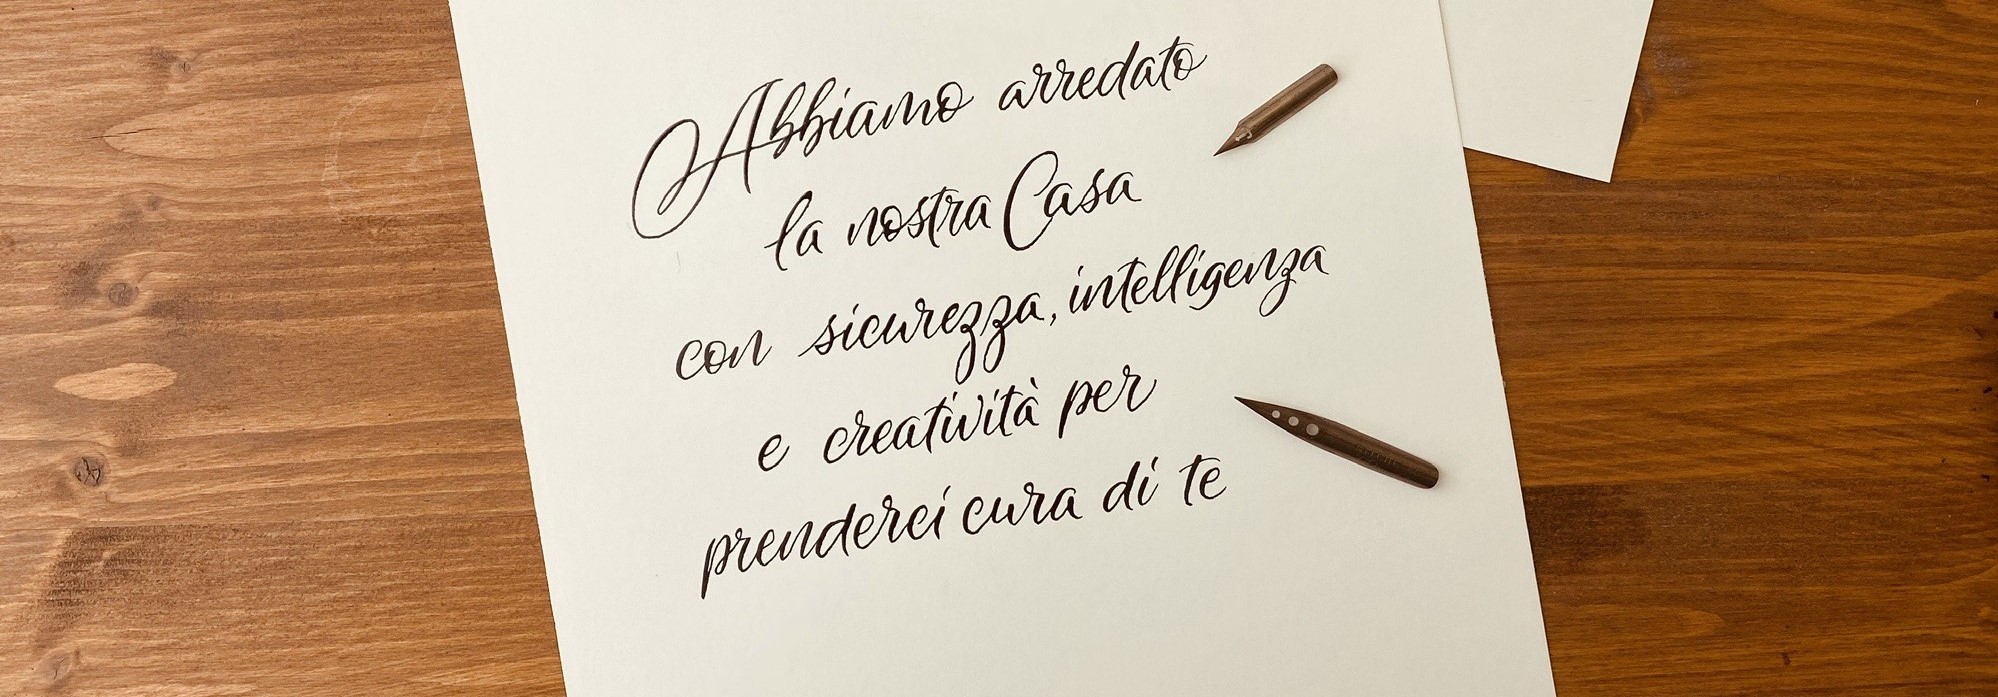 Abbiamo arredato
la nostra Casa
con sicurezza, intelligenza
e creatività per
prenderci cura di te